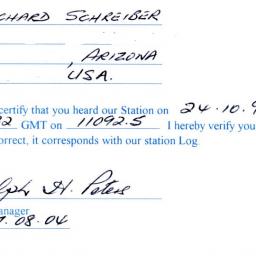 CHARD SCHREIBER
, ARIZONA
USA.
certify that you heard our Station on 24.10.9
GMT on 11092.5 I hereby verify you
orrect, it corresponds with our station Log
lph H. Peters
anager
.08.04